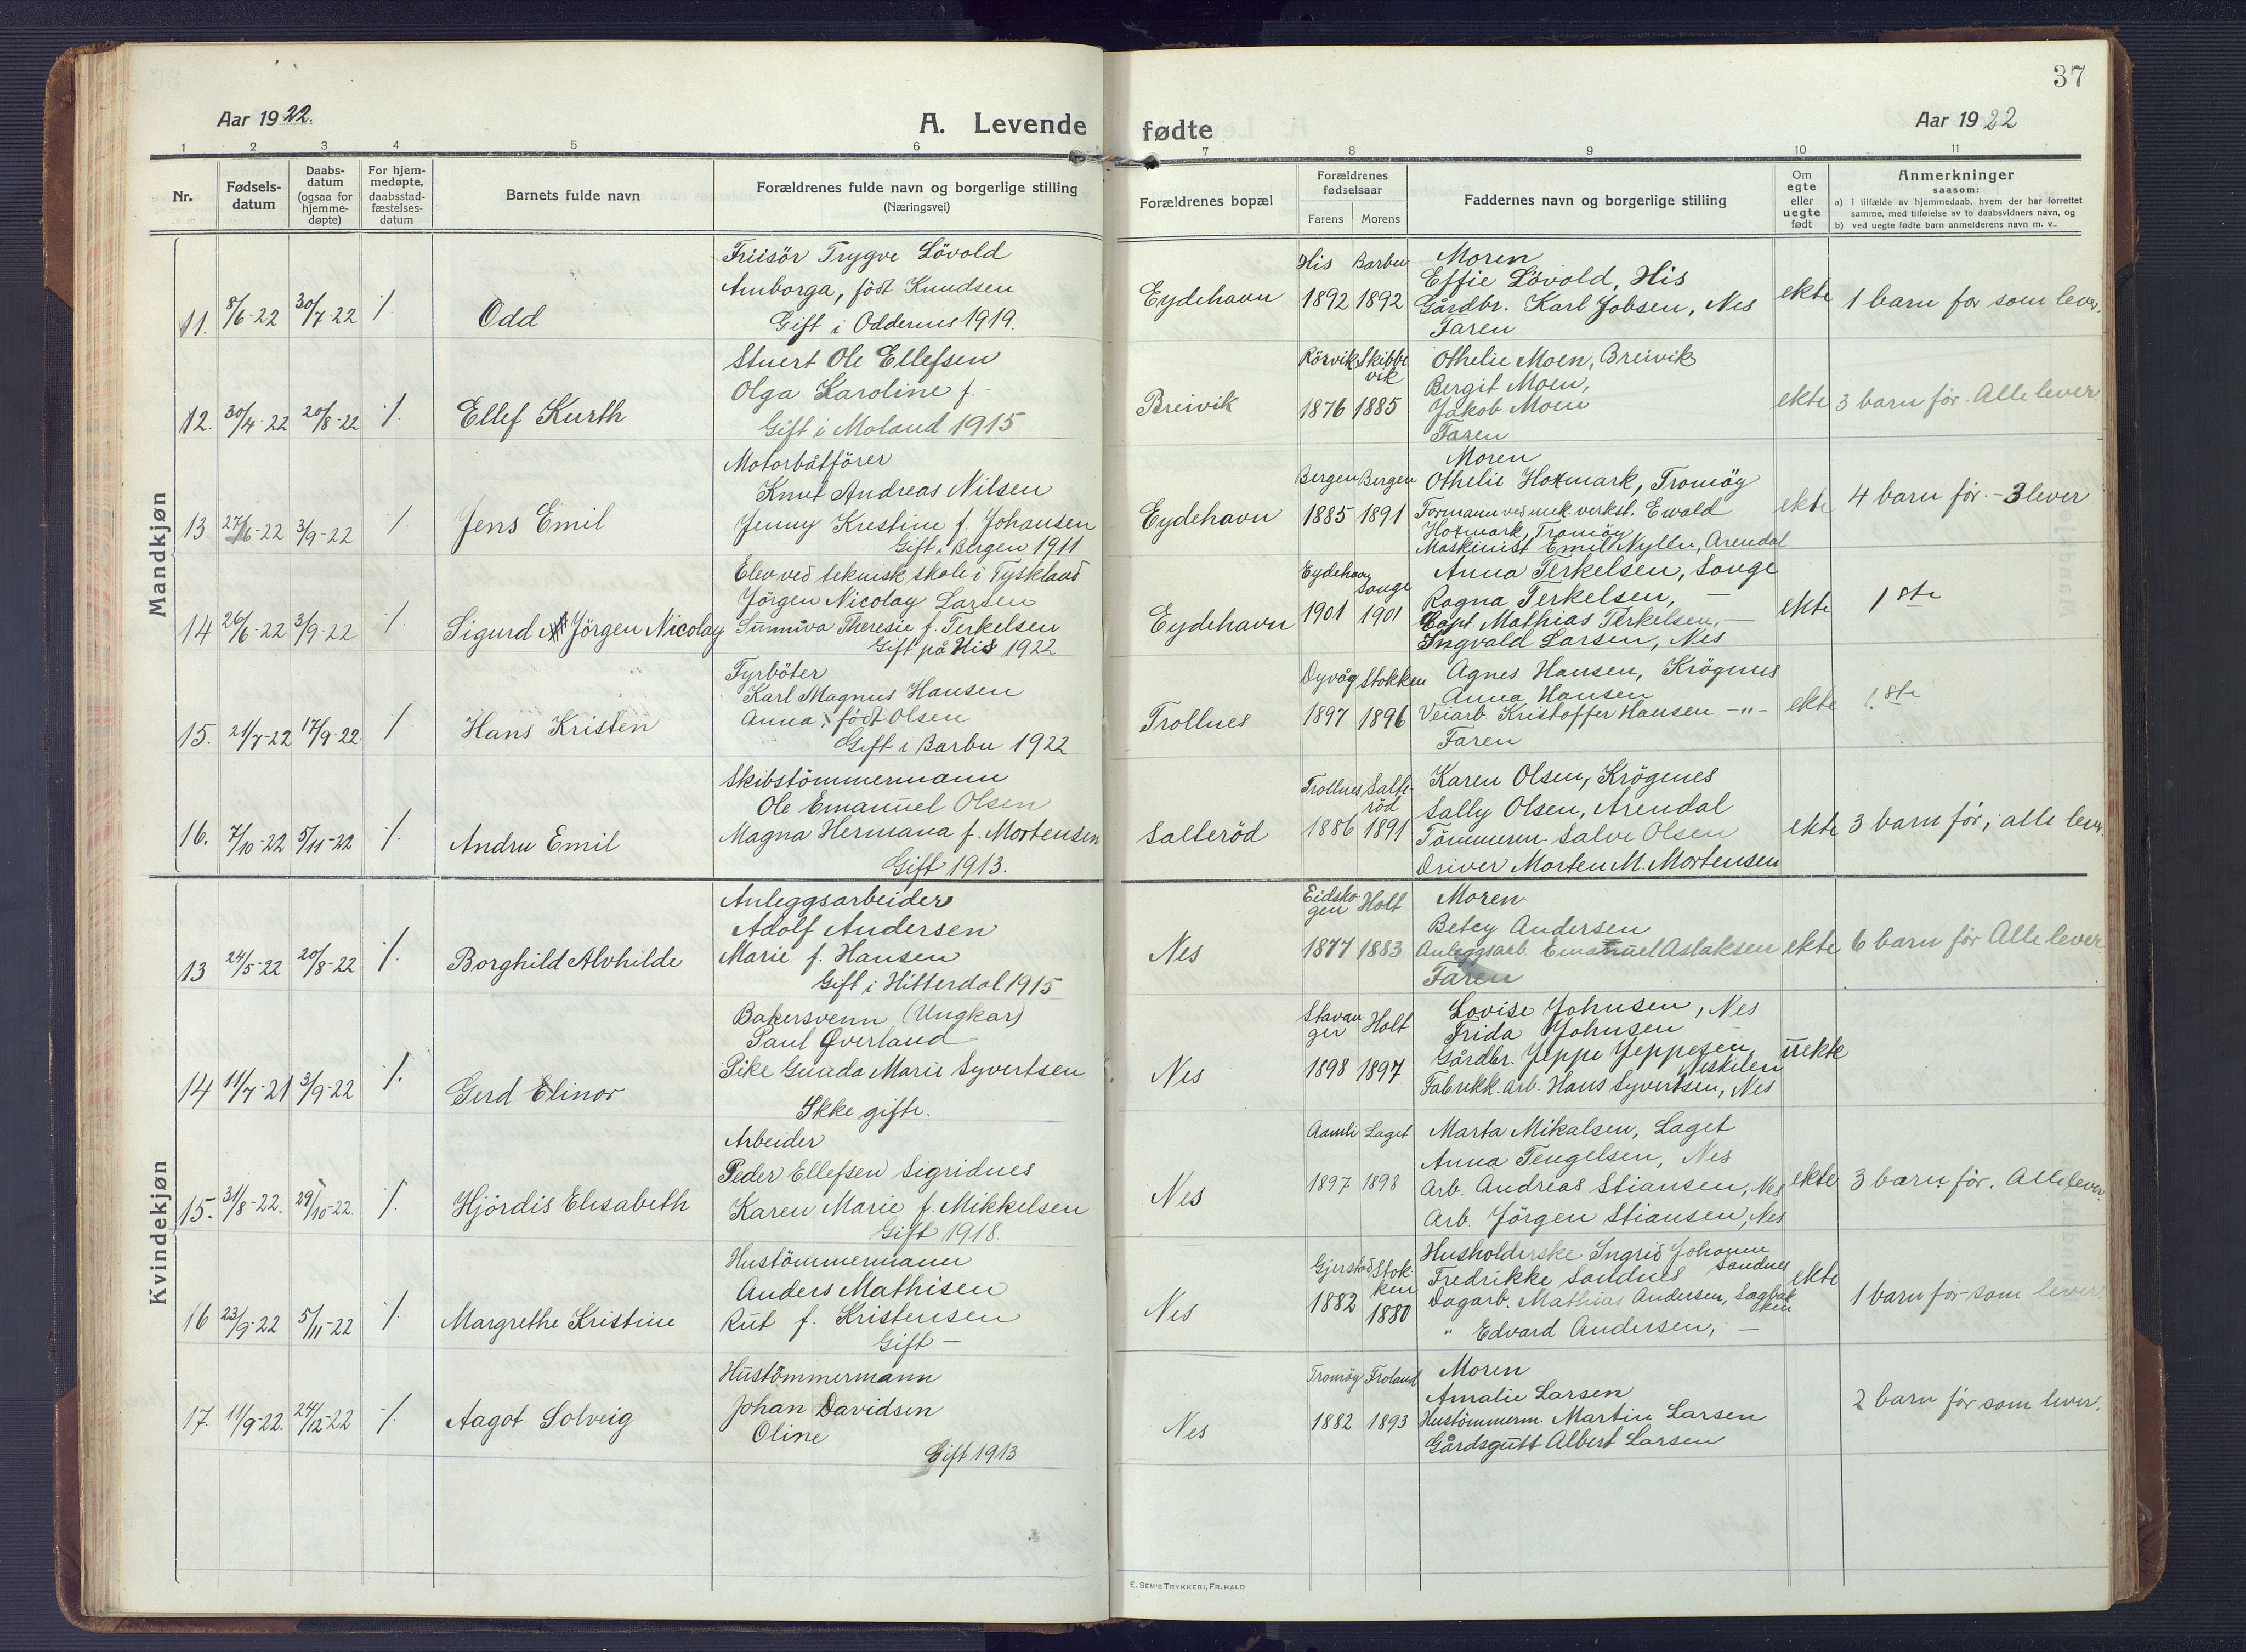 37
Aar 1922.
A. Levende
fødte
Aar 1922
1 2 3 4 5 6 7 8 9 10 11
Nr.
Fødsels-
datum
Daabs-
datum
(ogsaa for
hjemme-
døpte)
For hjem-
medøpte,
daabsstad-
fæstelses-
datum
Barnets fulde navn
Forældrenes fulde navn og borgerlige stilling
(Næringsvei)
Forældrenes bopæl
Forældrenes
fødselsaar
Farens Morens
Faddernes navn og borgerlige stilling
Om
egte
eller
uegte
født
Anmerkninger
saasom:
a) i tilfælde av hjemmedaab, hvem der har forrettet
samme, med tilføielse av to daabsvidners navn, og
b) ved uegte fødte barn anmelderens navn m. v..
Mandkjøn
11. 8/6-22 30/7-22 ⁒ Odd
Friisör Trygve Lövold
Amborga, födt Knudsen
Gift i Oddernes 1919.
Eydehavn
His Barbu
1892 1892
Moren
Effie Lövold, His
Gårdbr. Karl Jobsen, Nes
Faren
ekte
1 barn för som lever.
12. 30/4-22 20/8-22 ⁒ Ellef Kurth
Stuert Ole Ellefsen
Olga Karoline f. -
Gift i Moland 1915
Breivik
Rörvik Skibbe
vik
1876 1885
Othelie Moen, Breivik
Bergit Moen,
Jakob Moen
Faren
ekte
3 barn för. Alle lever.
13 27/6-22 3/9-22 ⁒ Jens Emil
Motorbåtförer
Knut Andreas Nilsen
Jenny Krestine f. Johansen
Gift i Bergen 1911
Eydehavn
Bergen Bergen
1885 1891
Moren
Othelie Hoxmark, Tromöy
Formann ved mek. verkst. Ewald
Hoxmark, Tromöy
Maskinist Emil Nylln, Arendal
ekte
4 barn för. - 3 lever
14 26/6-22 3/9-22 ⁒ Sigurd Jörgen Nicolay
Elev ved teknisk skole i Tyskland
Jörgen Nicolay Larsen
Sunniva Theresie f. Terkelsen
Gift på His 1922
Eydehavn
Eydehavn
Songe
1901 1901
Anna Terkelsen, Songe
Ragna Terkelsen, —
Capt. Mathias Terkelsen, —
Ingvald Larsen, Nes
ekte
1ste
15. 21/7-22 17/9-22 ⁒ Hans Kristen
Fyrböter
Karl Magnus Hansen
Anna, födt Olsen
Gift i Barbu 1922
Trollnes
Dyvåg Stokken
1897 1896
Agnes Hansen, Krögenes
Anna Hansen
Veiarb. Kristoffer Hansen -"-
Faren
ekte
1.ste
16. 7/10-22 5/11-22 ⁒ Andru Emil
Skibstömmermann
Ole Emanuel Olsen
Magna Hermana f. Mortensen
Gift 1913.
Salteröd
Trollnes Salte-
röd
1886 1891
Karen Olsen, Krögenes
Sally Olsen, Arendal
Tömmerm. Salve Olsen
Driver Morten M. Mortensen
ekte
3 barn för, alle lever.
Kvindekjøn
13 24/5-22 20/8-22 ⁒ Borghild Alvhilde
Anleggsarbeider
Adolf Andersen
Marie f. Hansen
Gift i Hitterdal 1915
Nes
Eidsko-
gen Holt
1877 1883
Moren
Betey Andersen
Anleggsarb. Emanuel Aslaksen
Faren
ekte
6 barn för Alle lever
14 11/7-21 3/9-22 ⁒ Gerd Elinor
Bakersvenn (Ungkar)
Paul Øverland
Pike Gunda Marie Syvertsen
Ikke gifte.
Nes
Stavan
ger Holt
1898 1897
Lovise Johnsen, Nes
Frida Johnsen —
Gårdbr. Jeppe Jeppesen,
Neskilen
Fabrikk.arb. Hans Syvertsen, Nes
uekte
15. 31/8-22. 29/10-22. ⁒ Hjördis Elisabeth
Arbeider
Peder Ellefsen Sigridnes
Karen Marie f. Mikkelsen
Gift 1918.
Nes
Aamli Laget
1897 1898
Marta Mikalsen, Laget
Anna Tengelsen, Nes
Arb. Andreas Stiansen, Nes
Arb. Jörgen Stiansen, Nes
ekte
3 barn för. Alle lever
16 23/9-22 5/11-22 ⁒ Margrethe Kristine
Hustömmermann
Anders Mathisen
Rut f. Kristensen
Gift —
Nes
Gjerstad Stok
ken
1882 1880
Husholderske Ingrid Johanne
Sandnes
Fredrikke Sandnes
Dagarb. Mathias Andersen, Sagbak
ken
" Edvard Andersen, —
ekte
1 barn för som lever.
17. 11/9-22. 24/12-22 ⁒ Aagot Solveig
Hustömmermann
Johan Davidsen
Oline
Gift 1913
Nes
Tromöy Froland
1882 1893
Moren
Amalie Larsen
Hustömmerm. Martin Larsen
Gårdsgutt Albert Larsen
2 barn för som lever.
E. SEM'S TRYKKERI, FR.HALD